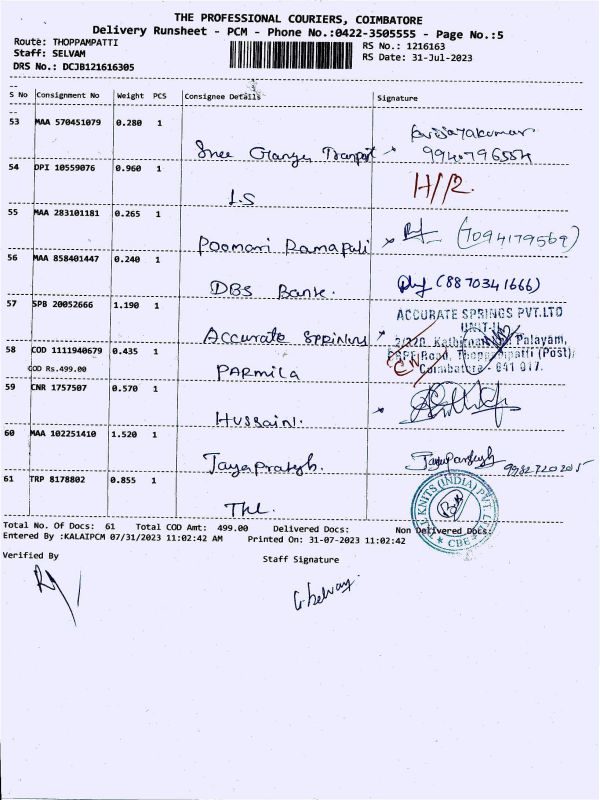 THE PROFESSIONAL COURIERS, COIMBATORE
Delivery Runsheet - PCM - Phone No.:0422-3505555 - Page No.:5
Route: THOPPAMPATTI
Staff: SELVAM
DRS No.: DCJB121616305
RS No.: 1216163
RS Date: 31-Jul-2023
S No Consignment No Weight PCS Consignee Details Signature
53 MAA 570451079 0.280 1
Shree Ganga Transport
99407 96554
54 DPI 10559076 0.960 1
I.S H/R.
55 MAA 283101181 0.265 1
Poomari Ramapali (7094179569)
56 MAA 858401447 0.240 1
DBS Bank. (8870341666)
57 SPB 20052666 1.190 1
Accurate Springs
ACCURATE SPRINGS PVT.LTD
UNIT-II
Palayam,
Road, Thoppampatti (Post)
Coimbatore - 641 017.
58 COD 1111940679 0.435 1
COD Rs.499.00
PARMILA
59 CNR 1757507 0.570 1
Hussain.
60 MAA 102251410 1.520 1
Jayaprakash.
61 TRP 8178802 0.855 1
KNITS (INDIA) PVT. LTD
CBE
Total No. Of Docs: 61 Total COD Amt: 499.00 Delivered Docs: Non Delivered Docs:
Entered By :KALAIPCM 07/31/2023 11:02:42 AM Printed On: 31-07-2023 11:02:42
Verified By
Staff Signature
G. Selvam